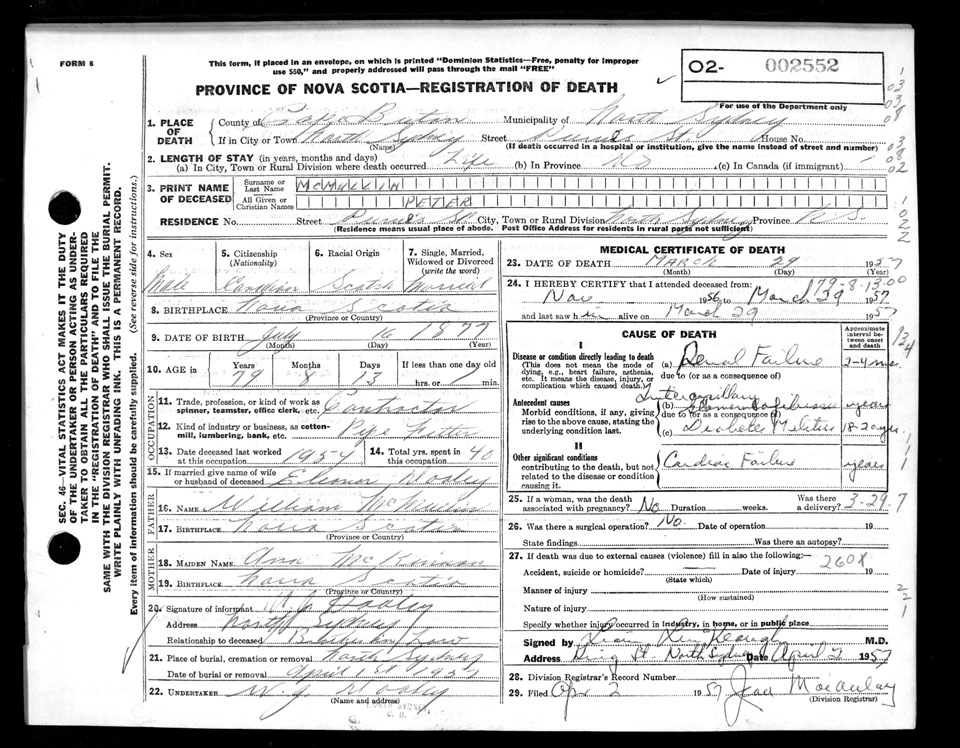 FORM 6
This form, if placed in an envelope, on which is printed "Dominion Statistics—Free, penalty for improper
use $50," and properly addressed will pass through the mail "FREE"
O2- 002552
For use of the Department only
PROVINCE OF NOVA SCOTIA—REGISTRATION OF DEATH
1. PLACE OF DEATH
County of Cape Breton Municipality of North Sydney
If in City or Town North Sydney Street St. House No.
(Name) (If death occurred in a hospital or institution, give the name instead of street and number)
2. LENGTH OF STAY (in years, months and days)
(a) In City, Town or Rural Division where death occurred Life (b) In Province (c) In Canada (if immigrant)
3. PRINT NAME OF DECEASED
Surname or Last Name McMULLIN
All Given or Christian Names PETER
RESIDENCE No. Street St. City, Town or Rural Division North Sydney Province N.S.
(Residence means usual place of abode. Post Office Address for residents in rural parts not sufficient)
4. Sex
Male
5. Citizenship
(Nationality)
Canadian
6. Racial Origin
Scotch
7. Single, Married,
Widowed or Divorced
(write the word)
Married
8. BIRTHPLACE Nova Scotia
(Province or Country)
9. DATE OF BIRTH July 16 1877
(Month) (Day) (Year)
10. AGE in Years Months Days If less than one day old
79 8 13 hrs. or min.
OCCUPATION
11. Trade, profession or kind of work as
spinner, teamster, office clerk, etc. Contractor
12. Kind of industry or business, as cotton-
mill, lumbering, bank, etc. Pipe Fitter
13. Date deceased last worked
at this occupation 1954
14. Total yrs. spent in
this occupation 40
15. If married give name of wife
or husband of deceased Eleanor Dooley
FATHER
16. NAME William McMullin
17. BIRTHPLACE Nova Scotia
(Province or Country)
MOTHER
18. MAIDEN NAME Ann McKinnon
19. BIRTHPLACE Nova Scotia
(Province or Country)
20. Signature of informant W. J. Dooley
Address North Sydney
Relationship to deceased Brother in Law
21. Place of burial, cremation or removal North Sydney
Date of burial or removal April 1st 1957
22. UNDERTAKER W. J. Dooley
(Name and address)
NORTH SYDNEY
C. B.
MEDICAL CERTIFICATE OF DEATH
23. DATE OF DEATH MARCH 29 1957
(Month) (Day) (Year)
24. I HEREBY CERTIFY that I attended deceased from:
79-8-13.00
Nov 1956 to March 29 1957
and last saw him alive on March 29 1957
CAUSE OF DEATH
Approximate
interval be-
tween onset
and death
I
Disease or condition directly leading to death
(This does not mean the mode of
dying, e.g., heart failure, asthenia,
etc. It means the disease, injury, or
complication which caused death.)
(a) Renal Failure 2-4 mos.
due to (or as a consequence of)
Antecedent causes
Morbid conditions, if any, giving
rise to the above cause, stating the
underlying condition last.
Intercapillary
(b) Glomerulosclerosis years
due to (or as a consequence of)
(c) Diabetes Mellitus 18-20 yrs
II
Other significant conditions
contributing to the death, but not
related to the disease or condition
causing it.
Cardiac Failure years
25. If a woman, was the death
associated with pregnancy? No Duration weeks. Was there
a delivery? 3-29.7
26. Was there a surgical operation? No. Date of operation 19
State findings Was there an autopsy?
27. If death was due to external causes (violence) fill in also the following:—
Accident, suicide or homicide? Date of injury 19
260X
(State which)
Manner of injury
(How sustained)
Nature of injury
Specify whether injury occurred in industry, in home, or in public place
Signed by M.D.
Address King St. North Sydney Date April 2 1957
28. Division Registrar's Record Number
29. Filed Apr 2 1957 Jean Macaulay
(Division Registrar)
SEC. 46—VITAL STATISTICS ACT MAKES IT THE DUTY
OF THE UNDERTAKER OR PERSON ACTING AS UNDER-
TAKER TO OBTAIN ALL THE PARTICULARS REQUIRED
IN THE "REGISTRATION OF DEATH" AND TO FILE THE
SAME WITH THE DIVISION REGISTRAR WHO SHALL ISSUE THE BURIAL PERMIT.
WRITE PLAINLY WITH UNFADING INK. THIS IS A PERMANENT RECORD.
Every item of information should be carefully supplied. (See reverse side for instructions.)